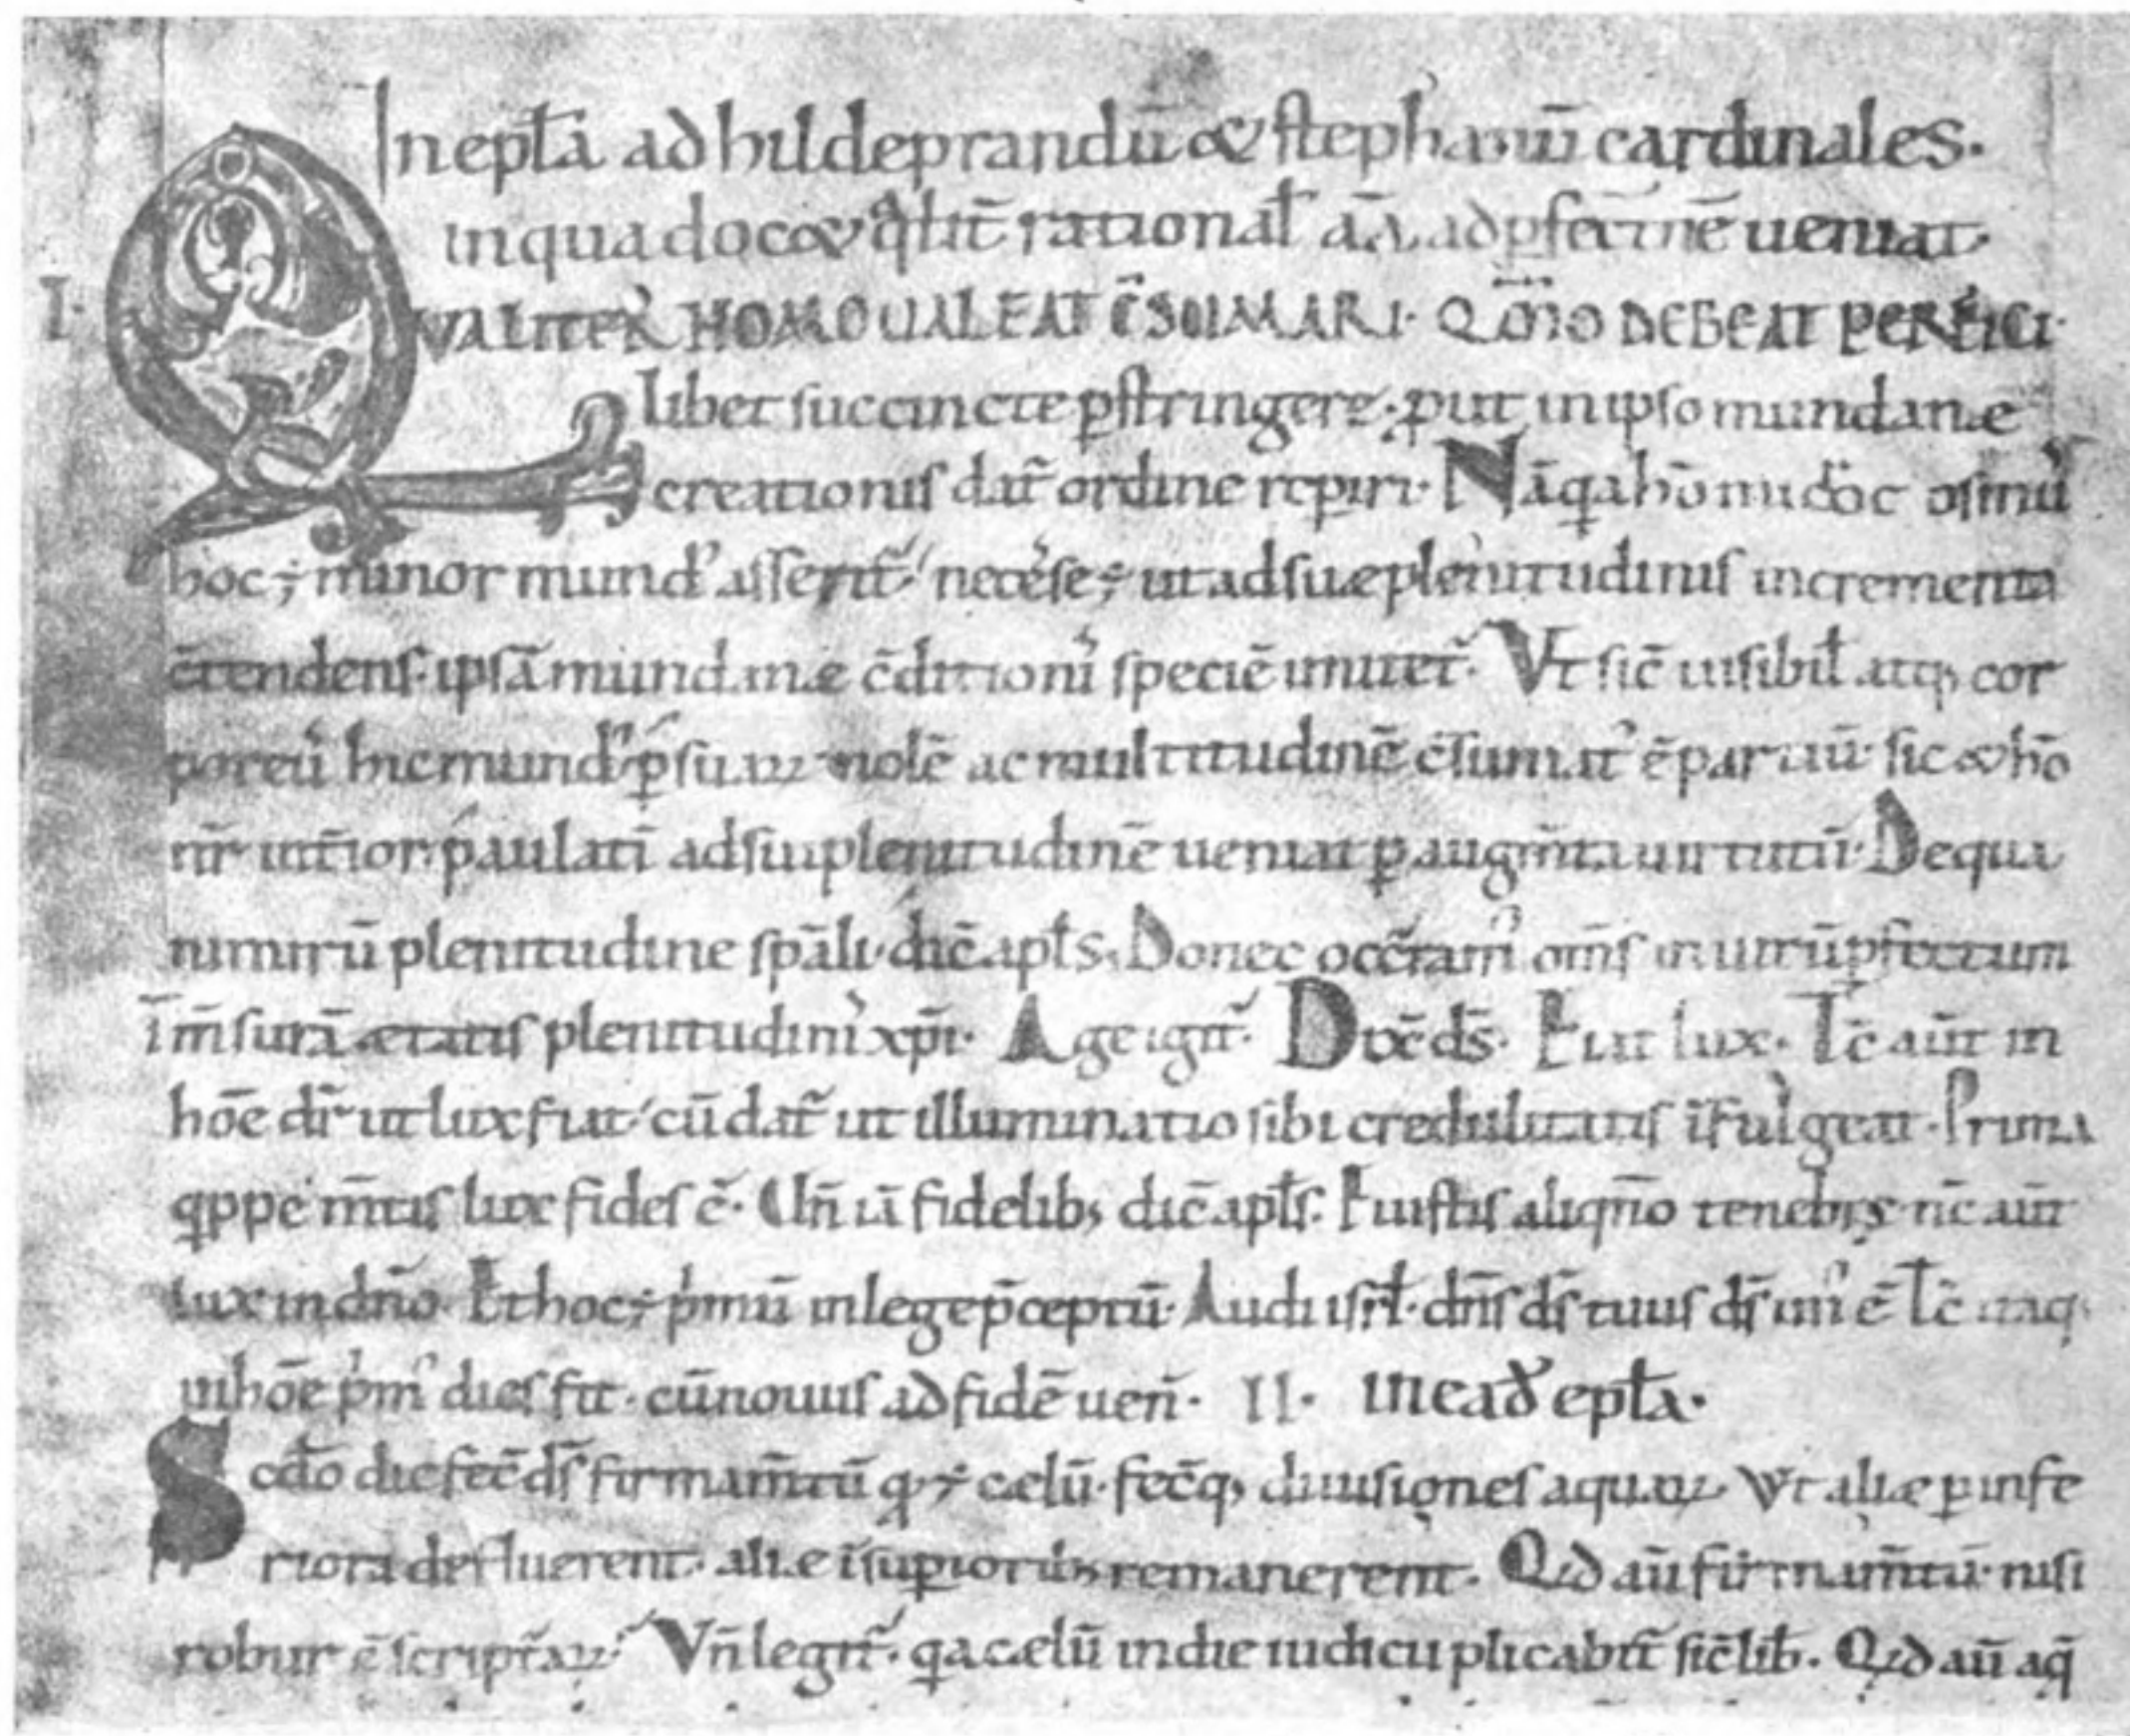 In epła ad hildeprandū & stephanū cardinales.
in qua doc& q̄lit̄ rationał aīa ad ꝑfectiōnē ueniat.
I. QVALITER HOMO UALEAT C̄SUMMARI. QōMO DEBEAT PERFICI.
libet succincte ꝑstringere. ꝓut in ipso mundanæ
creationis dat̃ ordine reꝑiri. Nā q̇a hō
hoc ÷ minor mund᾽ asserit̃. necesse ÷ ut ad suæ plenitudinis incrementa
c̄tendens. ipsā mundanæ c̄ditioni᾽ speciē imitet̃. Vt sic̄ uisibił atq; cor
poreu᾽ hic mund᾽ ꝑ suaꝝ molē ac multitudinē c̄sumat᾽ ē partiū. sic & hō
nr̄ int̄ior paulatī ad sui plenitudinē ueniat ꝑ augm̄ta uirtutū. De qua
nimirū plenitudine sp̄ali dic̄ apłs. Donec occ̄ram᾽ om̄s in uirū ꝑfectum
ī m̄surā ætatis plenitudini᾽ xp̄i. Age igit̃. Dix̄ ds̄. Fiat lux. Tc̄ aūt in
hōe dr̄ ut lux fiat. cū dat̃ ut illuminatio sibi credulitatis īfulgeat. Prima
q̇ppe m̄tis lux fides ē. Un̄ iā fidelib; dic̄ apłs. Fuistis aliqn̄o tenebrȩ. nc̄ aūt
lux in dn̄o. Et hoc ÷ ṗmū in lege p̄ceptū. Audi isrł. dn̄s ds̄ tuus ds̄ un᾽ ē. Tc̄ itaq;
in hōe ṗm᾽ dies fit. cū nouus ad fidē uen̄. II. in ead̄ epła.
Scdo die fec̄ ds̄ firmam̄tū q̇ ÷ cælū. fec̄q; diuisiones aquaꝝ. Vt aliæ ꝑ infe
riora defluerent. aliæ ī suꝑiorib; remanerent. Qid aū firmam̄tū. nisi
robur ē script̃aꝝ. Vn̄ legit̃. q̇a cælū in die iudicii plicabit̃ sic̄ lib̄. Qid aū aq̄